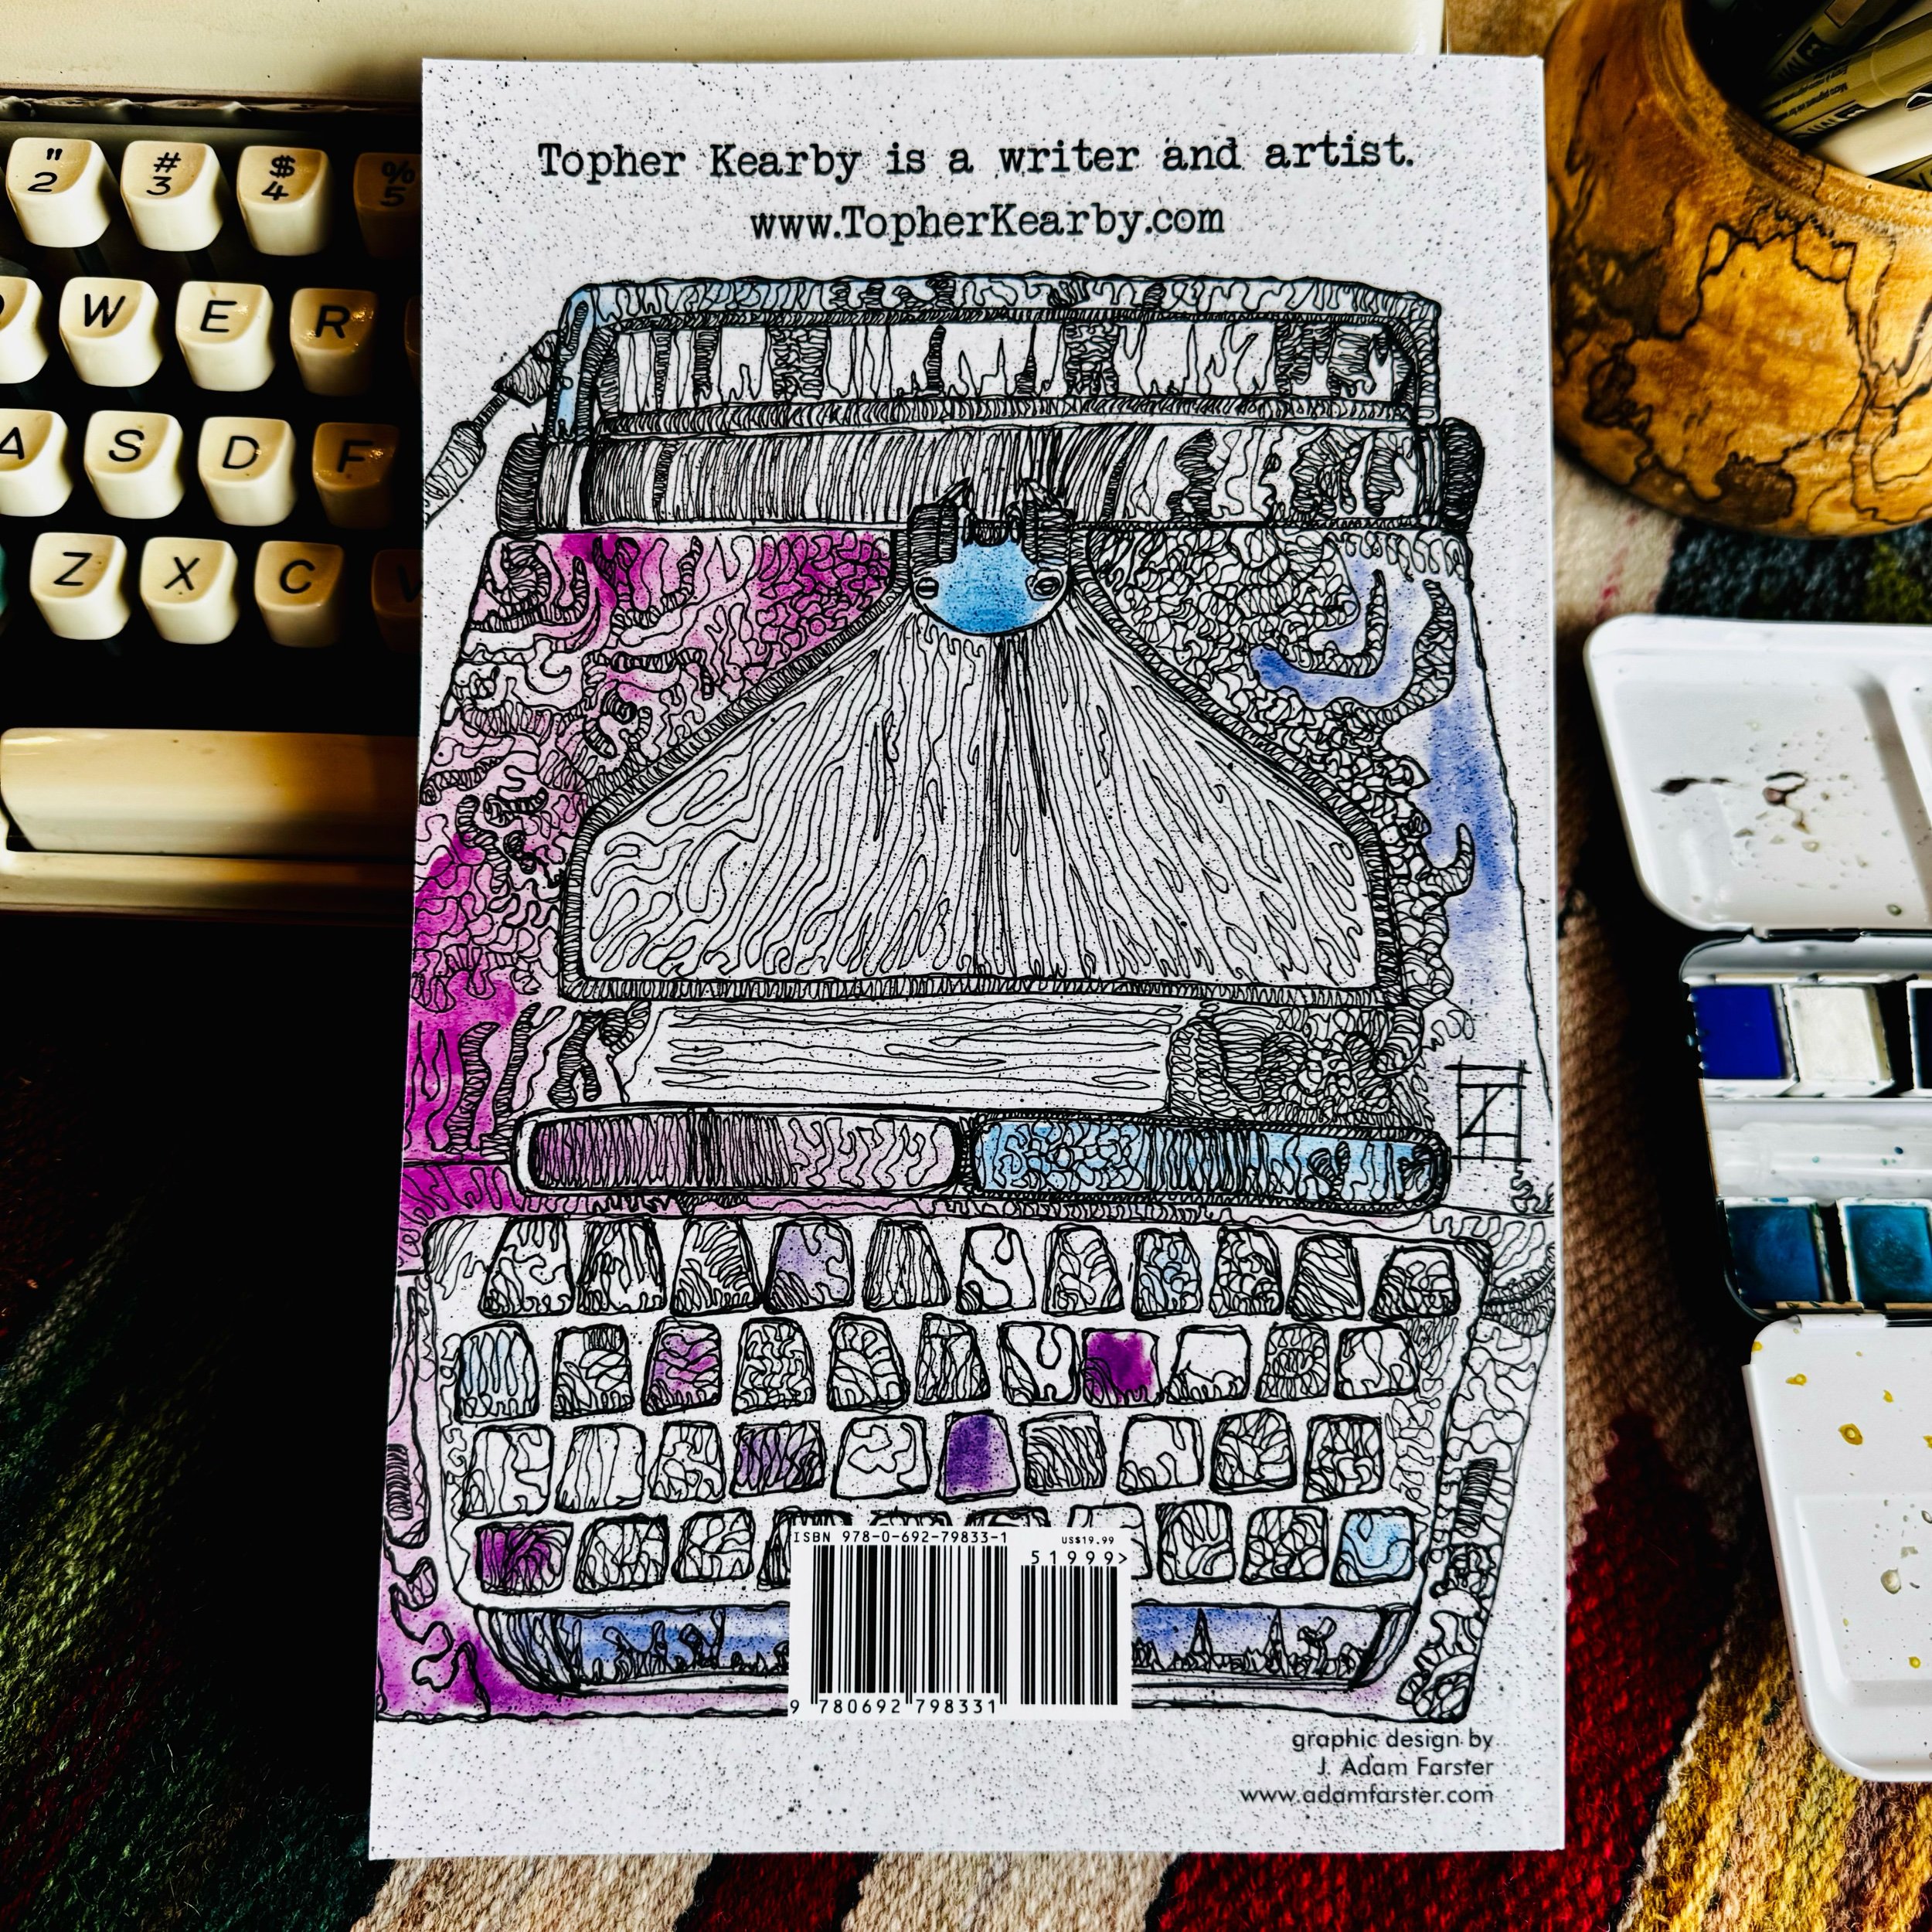 Topher Kearby is a writer and artist.
www.TopherKearby.com
" 2 # 3 $ 4 % 5
W E R
A S D F
Z X C V
ISBN 978-0-692-79833-1
US$19.99
51999>
9 780692 798331
graphic design by
J. Adam Farster
www.adamfarster.com